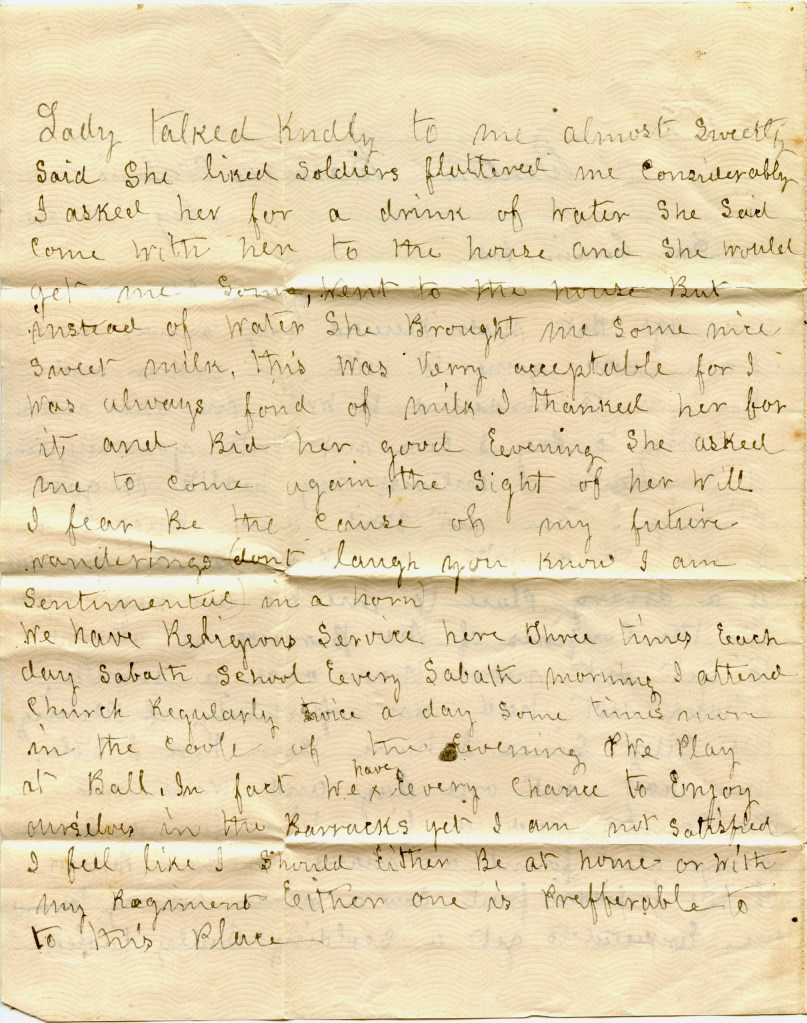 Lady talked Kndly to me almost Sweetly
Said She liked Soldiers fluttered me Considerably
I asked her for a drink of water She Said
Come with her to the house and She would
get me Some, Went to the house But
instead of Water She Brought me Some nice
Sweet milk, this was Verry acceptable for I
was always fond of milk I thanked her for
it and Bid her good Eevening She asked
me to come again, the Sight of her Will
I fear Be the Cause of my future
wanderings (dont laugh you Know I am
Sentimental) in a horn)
We have Religious Service here Three times Each
day Sabath School Eevery Sabath morning I attend
Church Regularly twice a day Some times more
in the Coole of the Eevening We Play
at Ball, In fact We have Eevery Chance to Enjoy
ourselves in the Barracks yet I am not Satisfied
I feel like I Should Either Be at home or With
my Regiment Eeither one is Prefferable to
to this Place